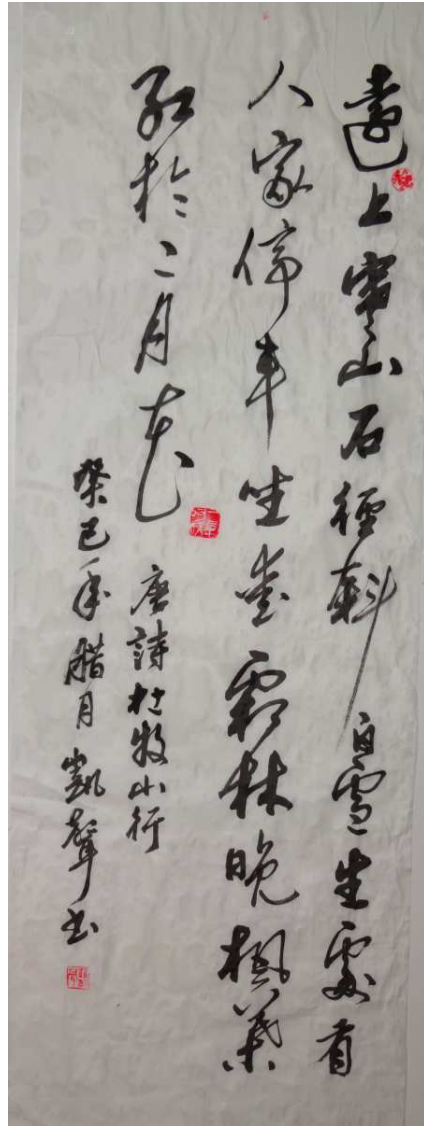 遠上寒山石徑斜白雲生處有
人家停車坐愛霜林晚楓葉
紅於二月花
唐詩杜牧山行
癸巳年腊月凱聲书